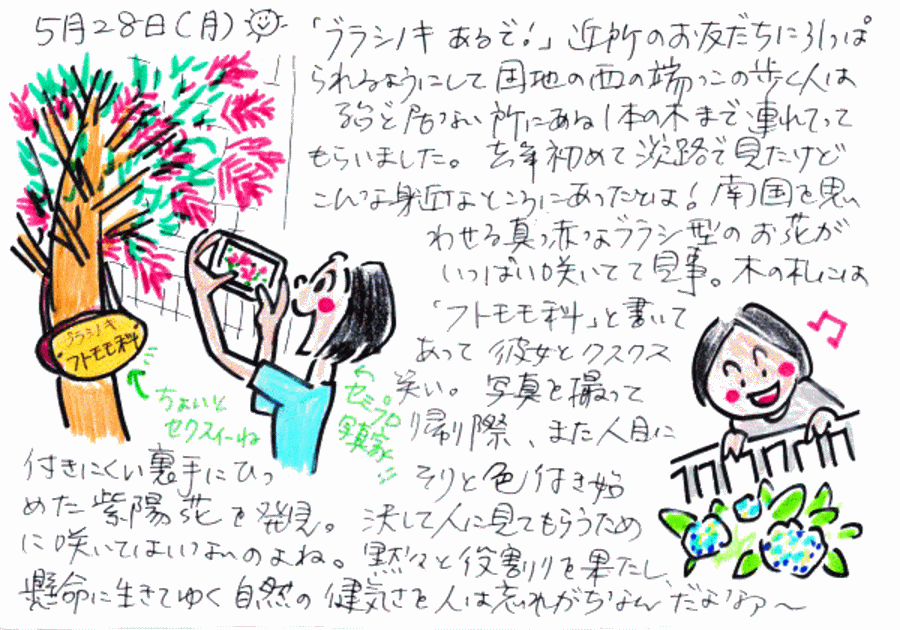 5月28日(月)
「ブラシノキあるで!」近所のお友だちに引っぱ
られるようにして団地の西の端っこの歩く人は
殆ど居ない所にある1本の木まで連れてって
もらいました。去年初めて淡路で見たけど
こんな身近なところにあったとは!南国を思い
わせる真っ赤なブラシ型のお花が
いっぱい咲いてて見事。木の札には
「フトモモ科」と書いて
あって彼女とクスクス
笑い。写真を撮って
帰り際、また人目に
付きにくい裏手にひっ
そりと色付き始
めた紫陽花を発見。決して人に見てもらうため
に咲いてはいないのよね。黙々と役割りを果たし、
懸命に生きてゆく自然の健気さを人は忘れがちなんだよなァ〜
ブラシノキ
フトモモ科
ちょいと
セクスィーね
セミプロ
写真家